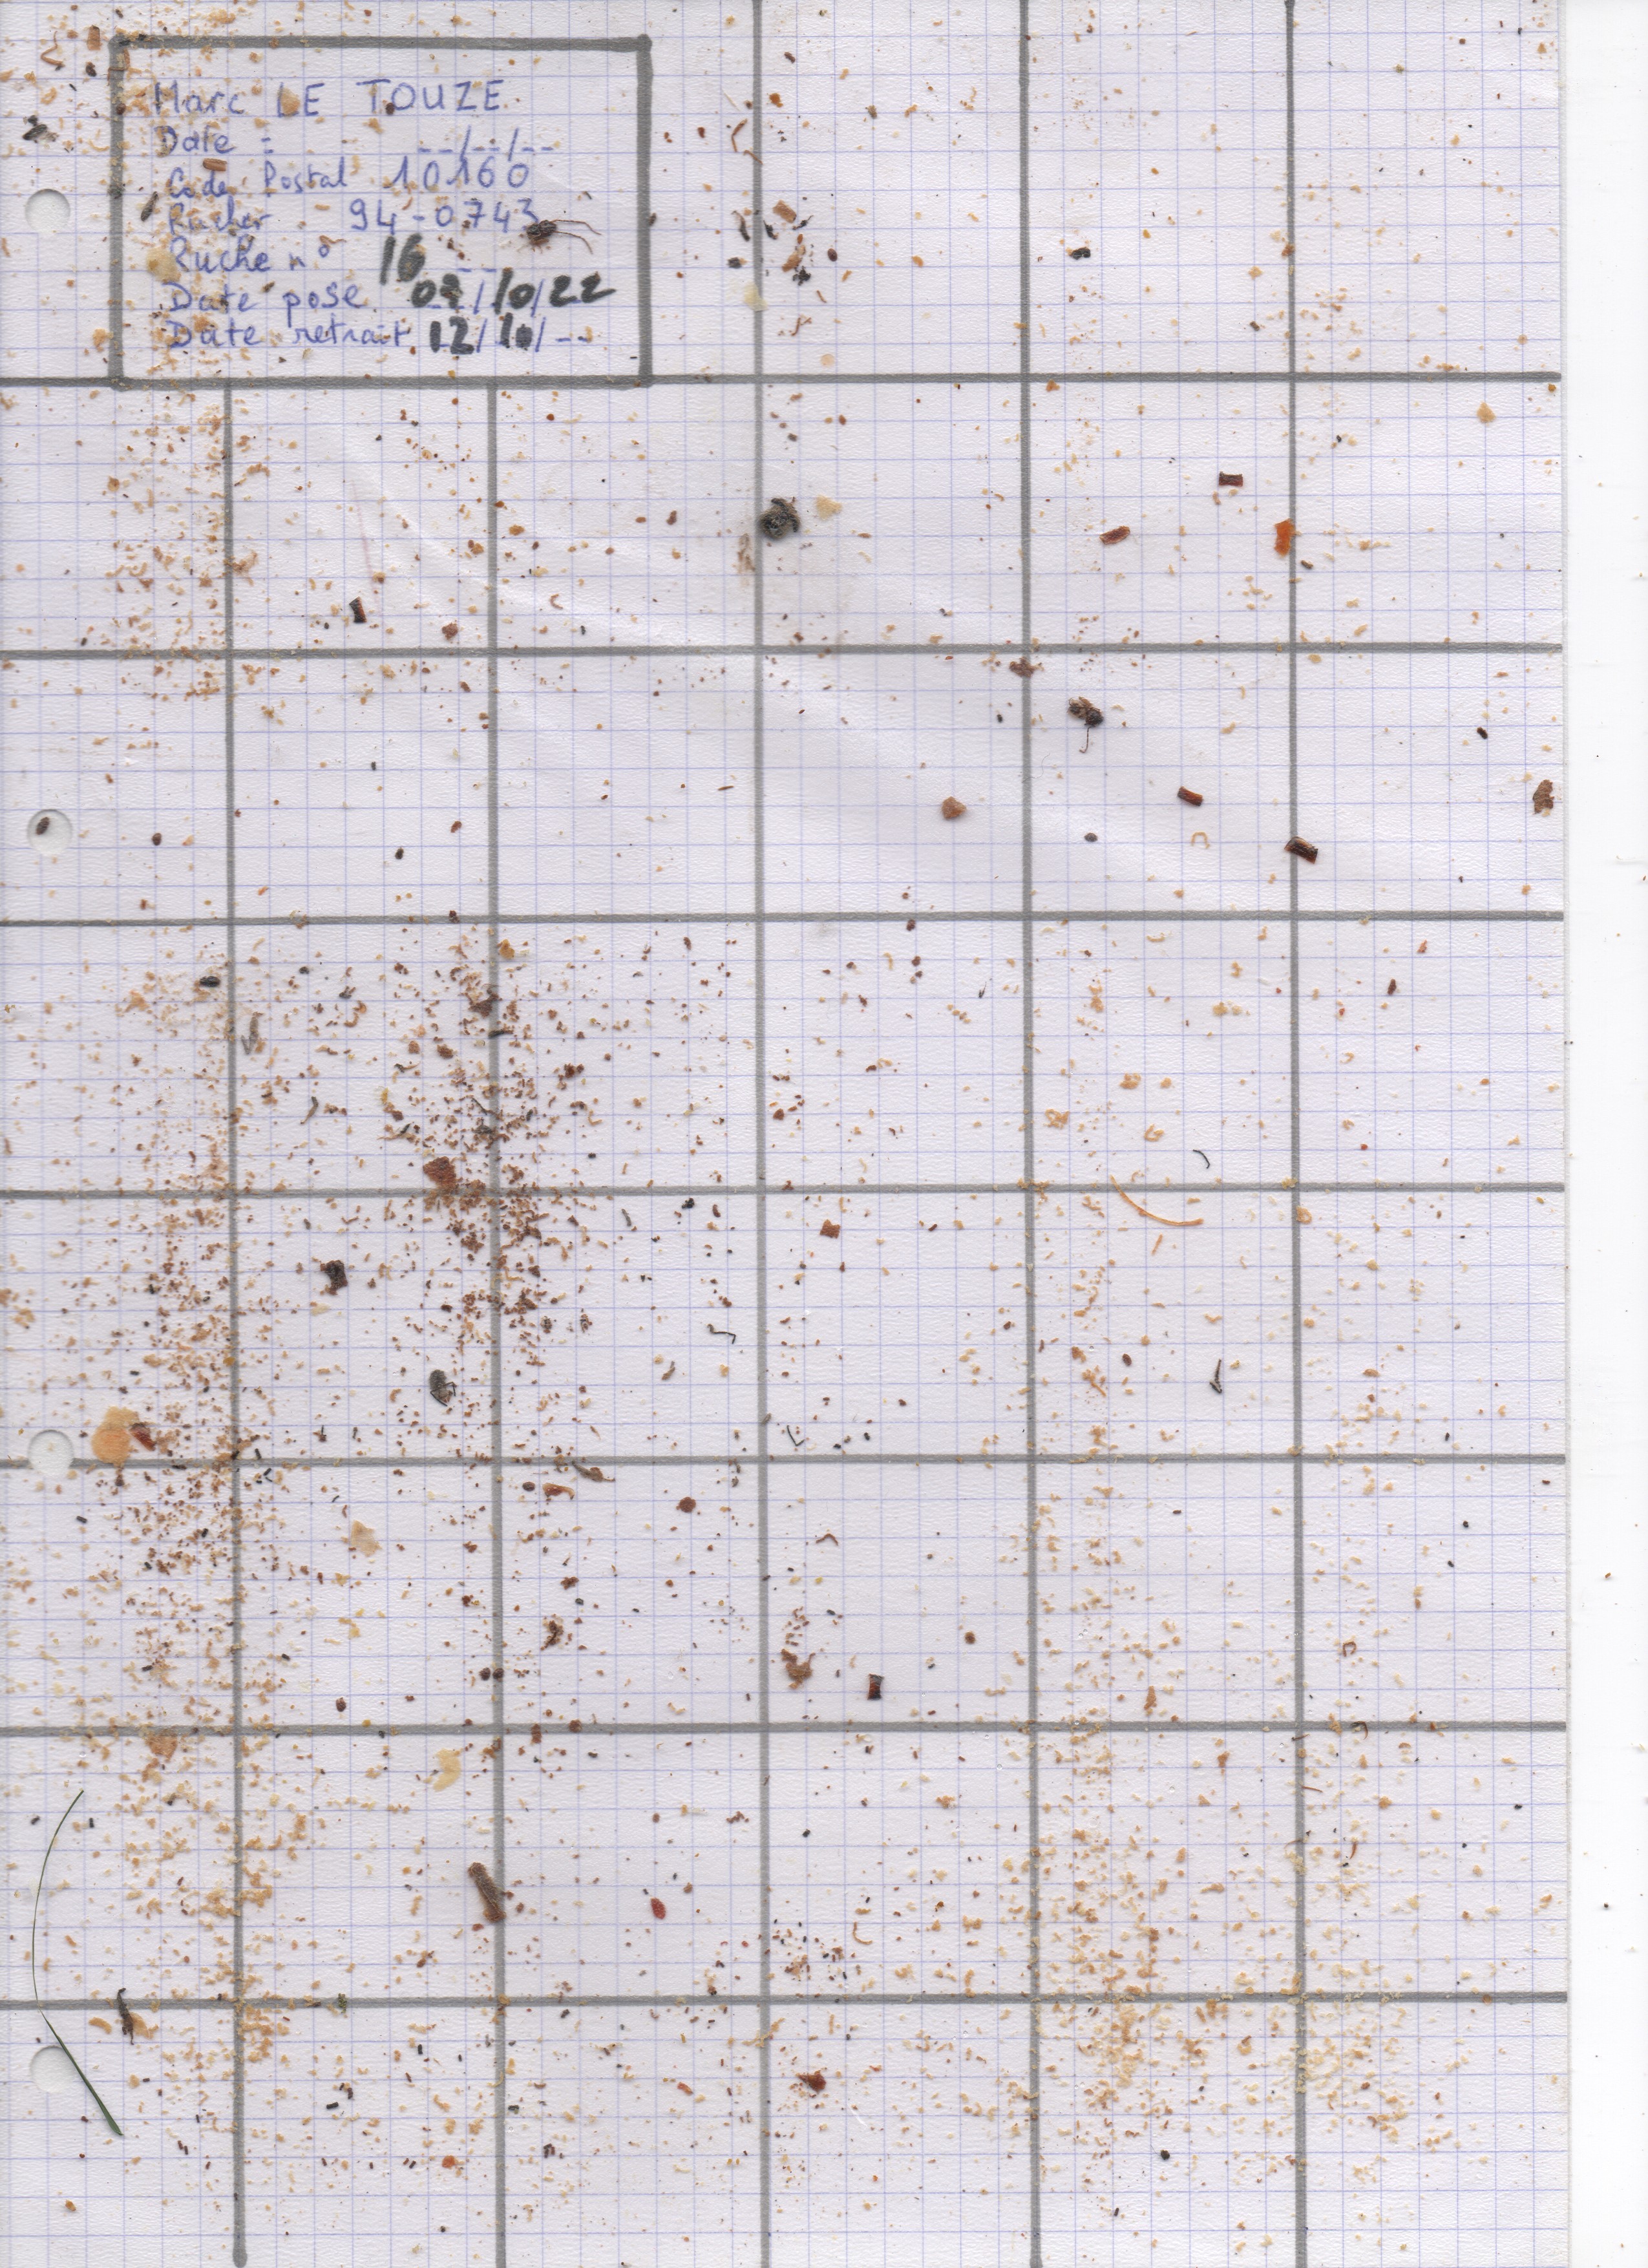 Marc LE TOUZE
Date : --/--/--
Code Postal 10160
Rucher 94-0743
Ruche n° 16 --
Date pose /10/22
Date retrait 12/10/--